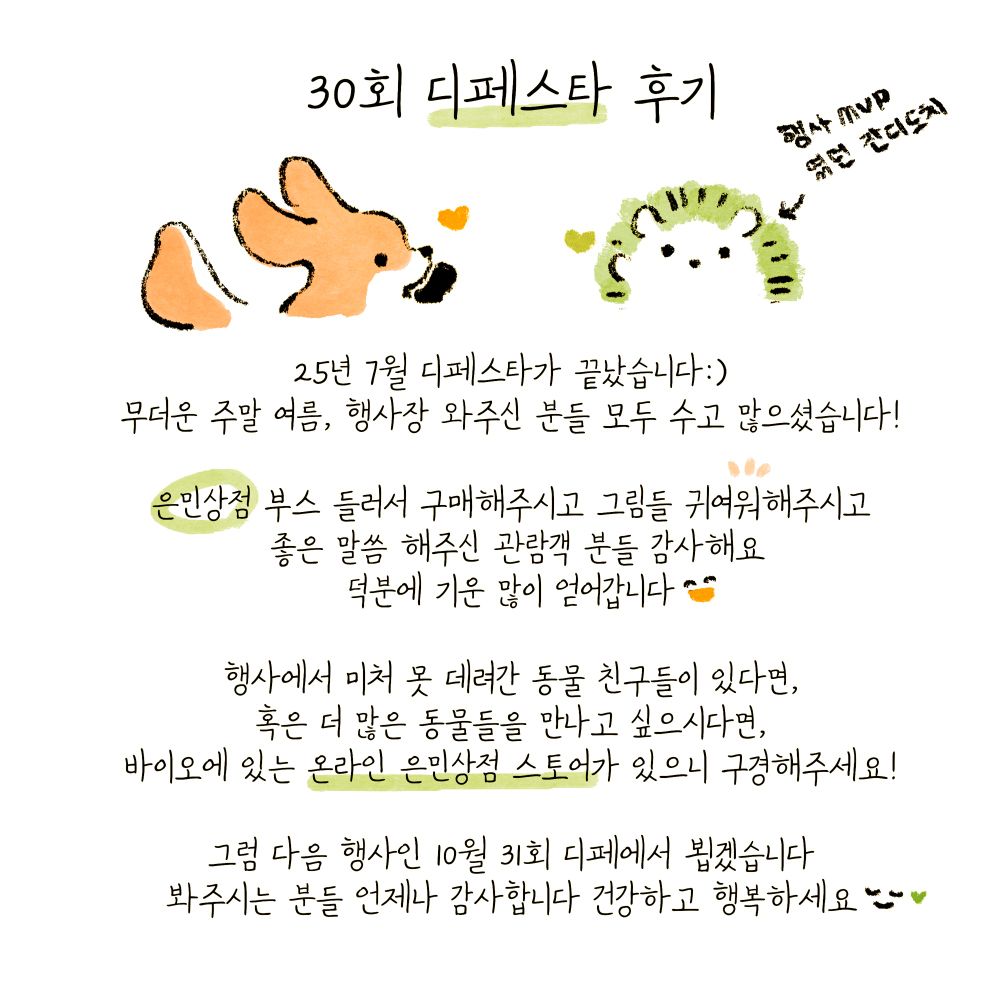 30회 디페스타 후기
행사 MVP
였던 잔디도치
25년 7월 디페스타가 끝났습니다:)
무더운 주말 여름, 행사장 와주신 분들 모두 수고 많으셨습니다!
은민상점 부스 들러서 구매해주시고 그림들 귀여워해주시고
좋은 말씀 해주신 관람객 분들 감사해요
덕분에 기운 많이 얻어갑니다
행사에서 미처 못 데려간 동물 친구들이 있다면,
혹은 더 많은 동물들을 만나고 싶으시다면,
바이오에 있는 온라인 은민상점 스토어가 있으니 구경해주세요!
그럼 다음 행사인 10월 31회 디페에서 뵙겠습니다
봐주시는 분들 언제나 감사합니다 건강하고 행복하세요